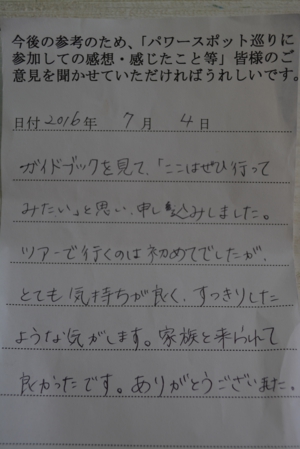 今後の参考のため、「パワースポット巡りに
参加しての感想・感じたこと等」皆様のご
意見を聞かせていただければうれしいです。
日付2016年 7月 4日
ガイドブックを見て、「ここはぜひ行って
みたい」と思い、申し込みしました。
ツアーで行くのは初めてでしたが、
とても気持ちが良く、すっきりした
ような気がします。家族と来られて
良かったです。ありがとうございました。